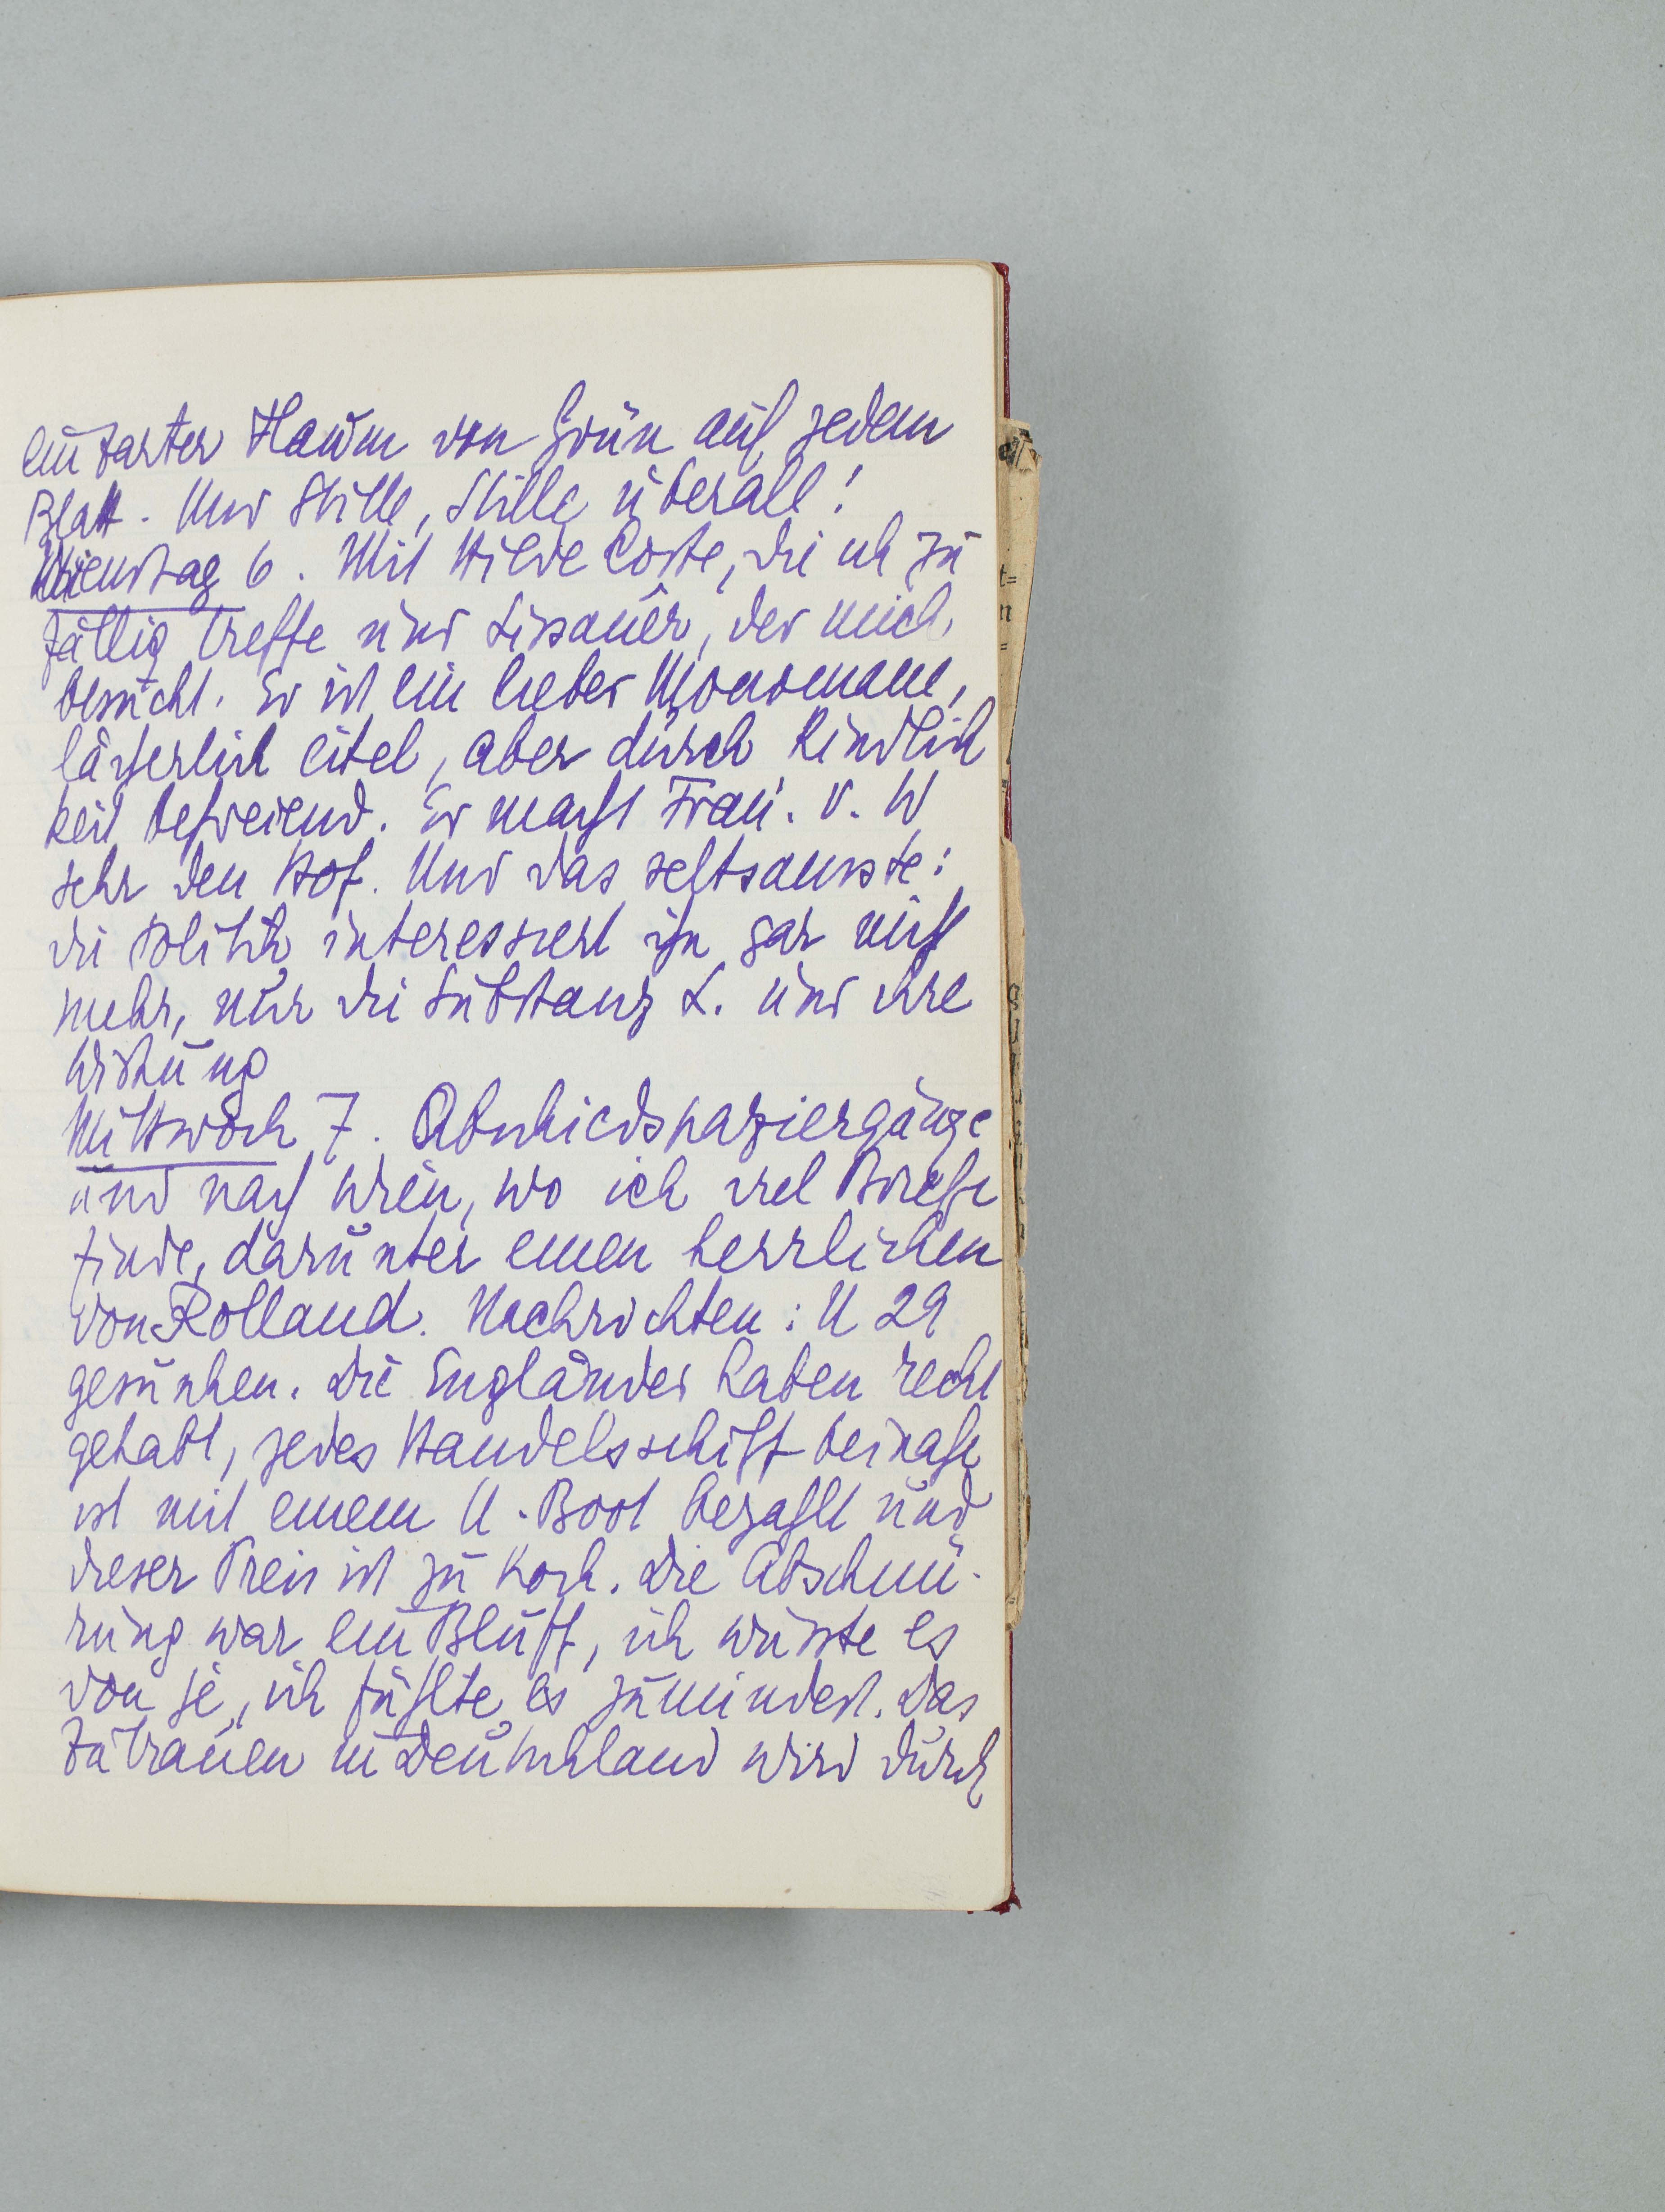 ein zarter Flaum von Grün auf jedem
Blatt. Und Stille, Stille überall!
Dienstag 6. Mit Hilde Coste, die ich zu
fällig treffe und Lissauer, der mich
besucht. Er ist ein lieber Monomane,
lächerlich eitel, aber durch Kindlich
keit befreiend. Er macht Frau. v. W
sehr den Hof. Und das seltsamste:
die Politik interessiert ihn gar nicht
mehr, nur die Substanz L. und ihre
Wirkung
Mittwoch 7. Abschiedspaziergänge
und nach Wien, wo ich viel Briefe
finde, darunter einen herrlichen
von Rolland. Nachrichten: U 29
gesunken. Die Engländer haben recht
gehabt, jedes Handelsschiff beinahe
ist mit einem U-Boot bezahlt und
dieser Preis ist zu hoch. Die Abschnü-
rung war ein Bluff, ich wusste es
von je, ich fühlte es zumindest. Das
Zutrauen in Deutschland wird durch